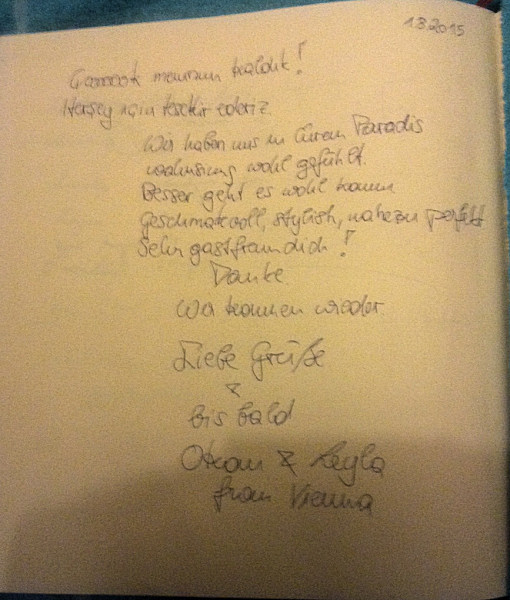 1.8.2015
Çok memnun kaldık!
Herşey için teşekkür ederiz.
Wir haben uns in Ihrem Paradis
wahnsinnig wohl gefühlt.
Besser geht es wohl kaum
Geschmackvoll, stylish, nahezu perfekt
Sehr gastfreundlich!
Danke
Wir kommen wieder
Liebe Grüße
&
bis bald
& Leyla
from Vienna